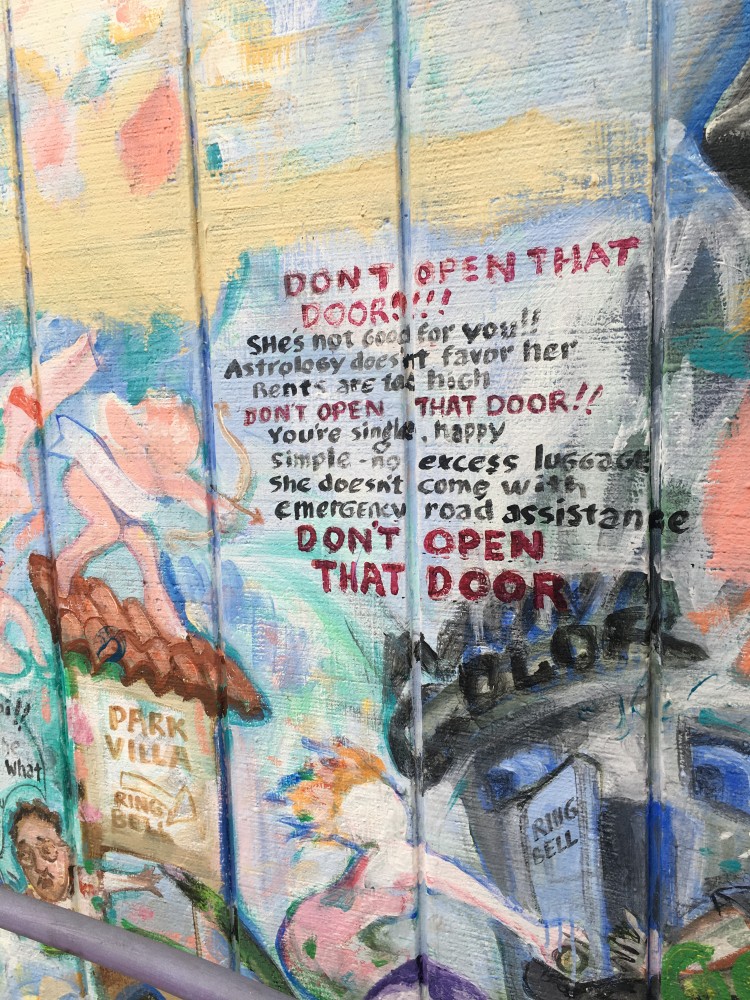 DON'T OPEN THAT
DOOR!!!!
SHe's not Good for you!!
Astrology doesn't favor her
Rents are too high
DON'T OPEN THAT DOOR!!
You're single, happy
simple - no excess luggage
She doesn't come with
emergency road assistance
DON'T OPEN
THAT DOOR
COLOR
PARK
VILLA
RING
BELL
RING
BELL
What